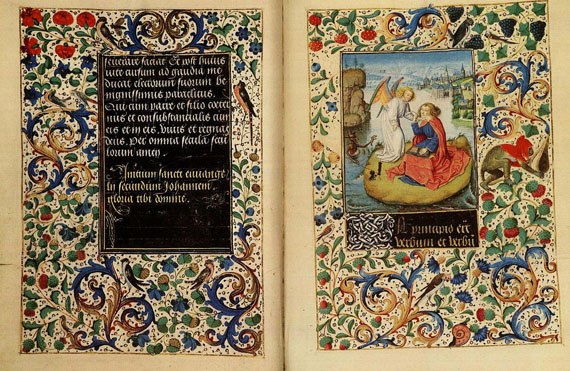 feruare faciat Et post huius
uite cursum ad gaudia me
ducat electorum suorum be
nignissimus paraclitus.
Qui cum patre et filio coeter
nus et consubstantialis
et viuis et regnas
deus. Per omnia secula secu
lorum amen.
Initium sancti euangelii
secundum Johannem.
gloria tibi domine.
In principio erat
verbum et verbū